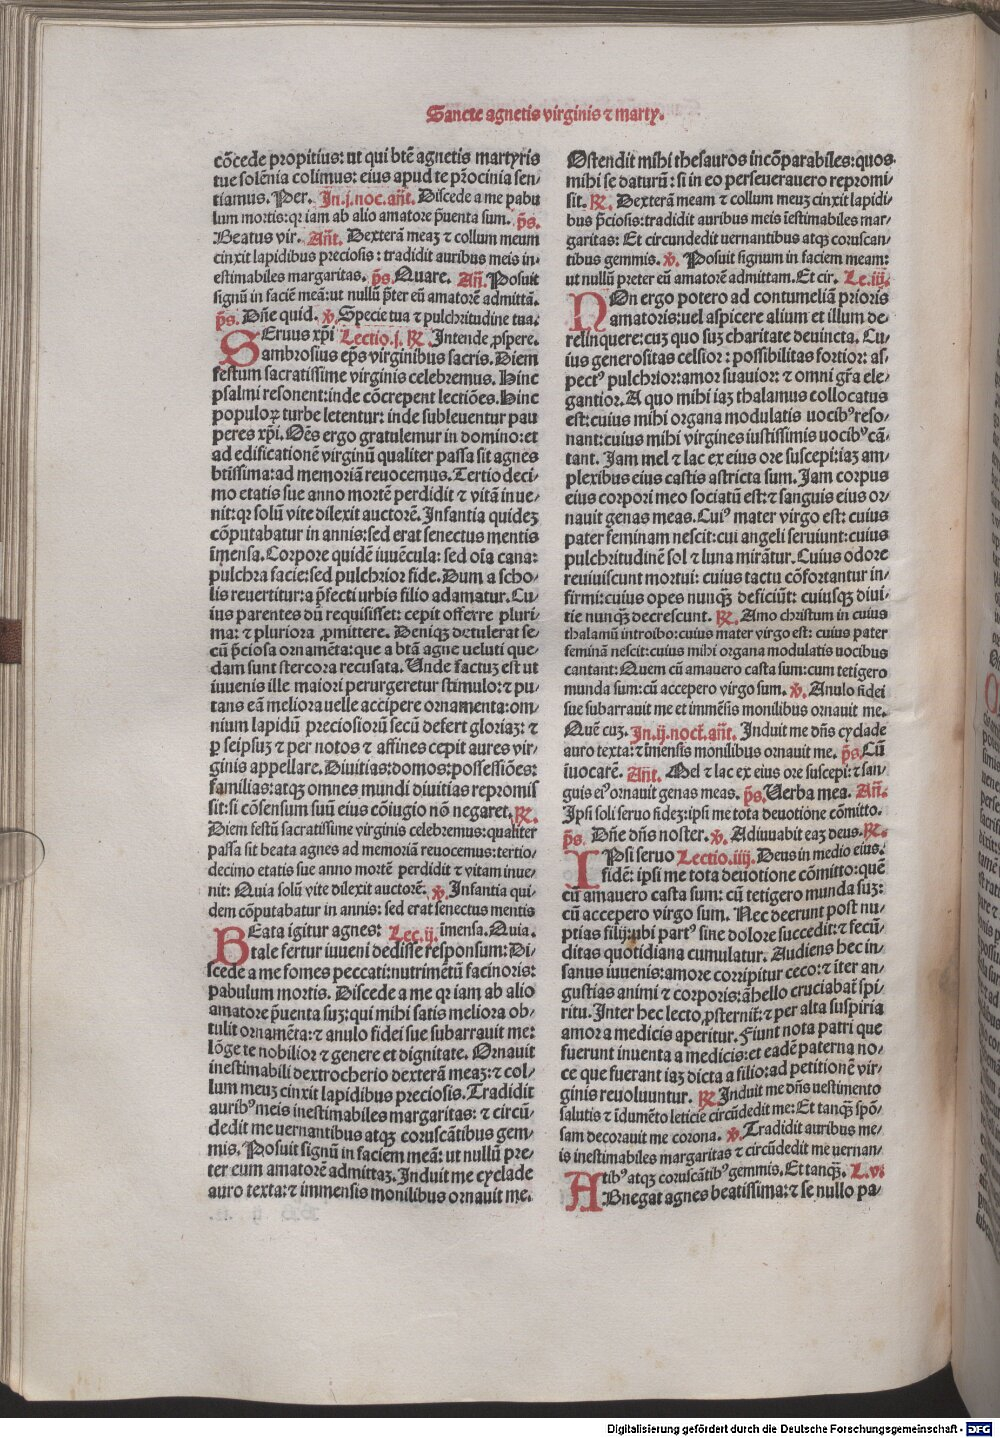 Sancte agnetis virginis ⁊ marty.
cōcede propitius: ut qui btē agnetis martyris
tue solēnia colimus: eius apud te p̄rocinia sen⸗
tiamus. Per. In .j. noc. añt. Discede a me pabu
lum mortis: qꝛ iam ab alio amatore p̄uenta sum. p̄s.
Beatus vir. Añt. Dexterā meaȝ ⁊ collum meum
cinxit lapidibus preciosis: tradidit auribus meis in⸗
estimabiles margaritas. p̄s. Quare. Añ. Posuit
signū in faciē meā: ut nullū p̄ter eū amatorē admittā.
p̄s. Dñe quid. ℣. Specie tua ⁊ pulchritudine tua.
SEruus xp̄i Lectio .j. ℟. Intende ꝓspere.
ambrosius ep̄s virginibus sacris. Diem
festum sacratissime virginis celebremus. Hinc
psalmi resonent: inde cōcrepent lectiōes. Hinc
populoꝝ turbe letentur: inde subleuentur pau
peres xp̄i. Oēs ergo gratulemur in domino: et
ad edificationē virginū qualiter passa sit agnes
btissima: ad memoriā reuocemus. Tertio deci⸗
mo etatis sue anno mortē perdidit ⁊ vitā inue⸗
nit: qꝛ solū vite dilexit auctorē. Infantia quideȝ
cōputabatur in annis: sed erat senectus mentis
īmensa. Corpore quidē iuuēcula: sed oīa cana:
pulchra facie: sed pulchrior fide. Dum a scho⸗
lis reuertitur: a p̄fecti urbis filio adamatur. Cu⸗
ius parentes dū requisisset: cepit offerre pluri⸗
ma: ⁊ pluriora ꝓmittere. Deniqȝ detulerat se⸗
cū p̄ciosa ornamēta: que a btā agne ueluti que⸗
dam sunt stercora recusata. Unde factuȝ est ut
iuuenis ille maiori perurgeretur stimulo: ⁊ pu⸗
tans eā meliora uelle accipere ornamenta: om⸗
nium lapidū preciosiorū secū defert gloriaȝ: ⁊
ꝑ seipsuȝ ⁊ per notos ⁊ affines cepit aures vir⸗
ginis appellare. Diuitias: domos: possessiōes:
familias: atqȝ omnes mundi diuitias repromis
sit: si cōsensum suū eius cōiugio nō negaret. ℟.
Diem festū sacratissime virginis celebremus: qualiter
passa sit beata agnes ad memoriā reuocemus: tertio⸗
decimo etatis sue anno mortē perdidit ⁊ vitam inue⸗
nit: Quia solū vite dilexit auctorē. ℣. Infantia qui⸗
dem cōputabatur in annis: sed erat senectus mentis
BEata igitur agnes: Lec. ij. īmensa. Quia.
tale fertur iuueni dedisse responsum: Di⸗
scede a me fomes peccati: nutrimētū facinoris:
pabulum mortis. Discede a me qꝛ iam ab alio
amatore p̄uenta suȝ: qui mihi satis meliora ob⸗
tulit ornamēta: ⁊ anulo fidei sue subarrauit me:
lōge te nobilior ⁊ genere et dignitate. Ornauit
inestimabili dextrocherio dexterā meaȝ: ⁊ col⸗
lum meuȝ cinxit lapidibus preciosis. Tradidit
auribꝰ meis inestimabiles margaritas: ⁊ circū⸗
dedit me uernantibus atqȝ coruscātibus gem⸗
mis. Posuit signū in faciem meā: ut nullū pre⸗
ter eum amatorē admittaȝ. Induit me cyclade
auro texta: ⁊ immensis monilibus ornauit me.
Ostendit mihi thesauros incōparabiles: quos
mihi se daturū: si in eo perseuerauero repromi⸗
sit. ℟. Dexterā meam ⁊ collum meuȝ cinxit lapidi⸗
bus p̄ciosis: tradidit auribus meis īestimabiles mar⸗
garitas: Et circundedit uernantibus atqȝ coruscan⸗
tibus gemmis. ℣. Posuit signum in faciem meam:
ut nullū preter eū amatorē admittam. Et cir. Le. iij.
NOn ergo potero ad contumeliā prioris
amatoris: uel aspicere alium et illum de⸗
relinquere: cuȝ quo suȝ charitate deuincta. Cu⸗
ius generositas celsior: possibilitas fortior: as⸗
pectꝰ pulchrior: amor suauior: ⁊ omni gr̄a ele⸗
gantior. A quo mihi iaȝ thalamus collocatus
est: cuius mihi organa modulatis uocibꝰ reso⸗
nant: cuius mihi virgines iustissimis uocibꝰ cā⸗
tant. Jam mel ⁊ lac ex eius ore suscepi: iaȝ am⸗
plexibus eius castis astricta sum. Jam corpus
eius corpori meo sociatū est: ⁊ sanguis eius or⸗
nauit genas meas. Cuiꝰ mater virgo est: cuius
pater feminam nescit: cui angeli seruiunt: cuius
pulchritudinē sol ⁊ luna mirātur. Cuius odore
reuiuiscunt mortui: cuius tactu cōfortantur in⸗
firmi: cuius opes nunqȝ deficiūt: cuiusqȝ diui⸗
tie nunqȝ decrescunt. ℟. Amo christum in cuius
thalamū introibo: cuius mater virgo est: cuius pater
feminā nescit: cuius mihi organa modulatis uocibus
cantant: Quem cū amauero casta sum: cum tetigero
munda sum: cū accepero virgo sum. ℣. Anulo fidei
sue subarrauit me et immēsis monilibus ornauit me.
Quē cuȝ. In .ij. noct. añt. Induit me dñs cyclade
auro texta: ⁊ īmensis monilibus ornauit me. p̄s. Cū
īuocarē. Añt. Mel ⁊ lac ex eius ore suscepi: ⁊ san⸗
guis eiꝰ ornauit genas meas. p̄s. Uerba mea. Añ.
Ipsi soli seruo fideȝ: ipsi me tota deuotione cōmitto.
p̄s. Dñe dñs noster. ℣. Adiuuabit eaȝ deus. ℟.
IPsi seruo Lectio. iiij. Deus in medio eius.
fidē: ipsi me tota deuotione cōmitto: quē
cū amauero casta sum: cū tetigero munda suȝ:
cū accepero virgo sum. Nec deerunt post nu⸗
ptias filij: ubi partꝰ sine dolore succedit: ⁊ fecū⸗
ditas quotidiana cumulatur. Audiens hec in⸗
sanus iuuenis: amore corripitur ceco: ⁊ īter an⸗
gustias animi ⁊ corporis: āhello cruciabat̄ spi⸗
ritu. Inter hec lecto ꝓsternit̄: ⁊ per alta suspiria
amor a medicis aperitur. Fiunt nota patri que
fuerunt inuenta a medicis: et eadē paterna uo⸗
ce que fuerant iaȝ dicta a filio: ad petitionē vir⸗
ginis reuoluuntur. ℟. Induit me dñs uestimento
salutis ⁊ īdumēto leticie circūdedit me: Et tanqȝ spō⸗
sam decorauit me corona. ℣. Tradidit auribus me⸗
is inestimabiles margaritas ⁊ circūdedit me uernan⸗
tibꝰ atqȝ coruscātibꝰ gemmis. Et tanqȝ. L. v.
ABnegat agnes beatissima: ⁊ se nullo pa⸗
Digitalisierung gefördert durch die Deutsche Forschungsgemeinschaft - DFG